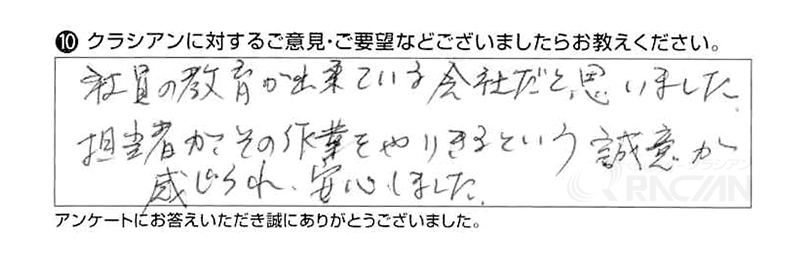 ⑩ クラシアンに対するご意見・ご要望などございましたらお教えください。
社員の教育が出来ている会社だと思いました。
担当者がその作業をやりきるという誠意が
感じられ、安心しました。
クラシアン
QRACIAN
アンケートにお答えいただき誠にありがとうございました。